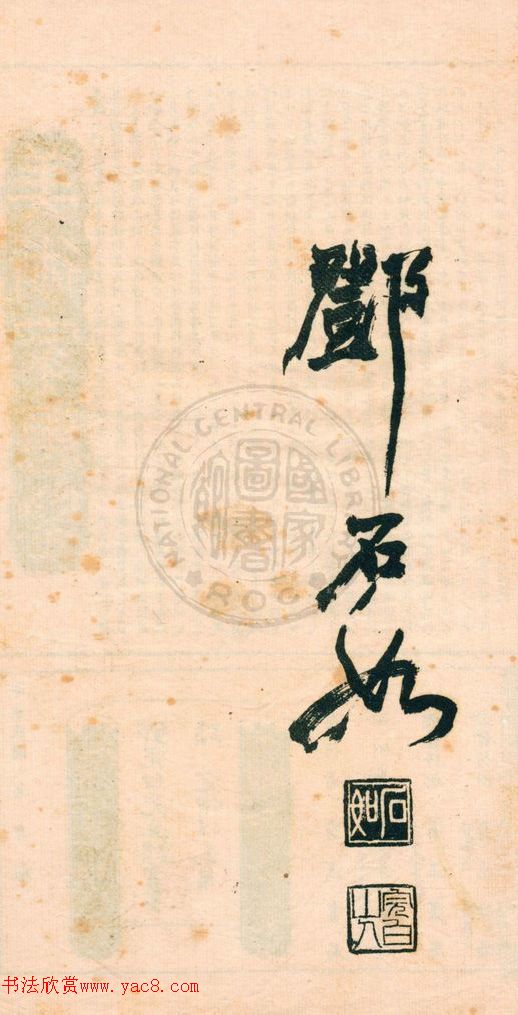 鄧石如
石如
完白山人
NATIONAL CENTRAL LIBRARY
國家圖書館
ROC
书法欣赏www.yac8.com